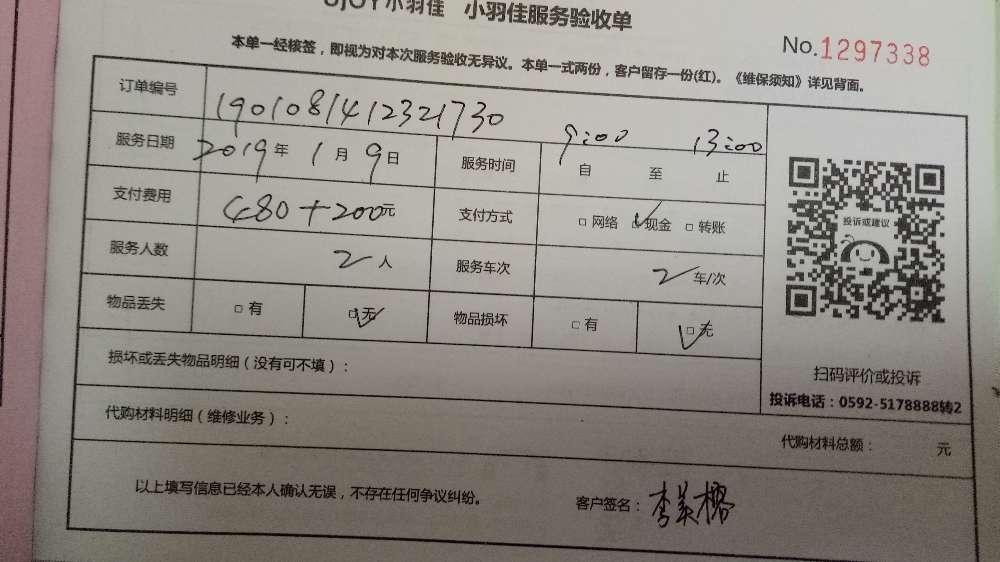 小羽佳 小羽佳服务验收单
No.1297338
本单一经核签，即视为对本次服务验收无异议。本单一式两份，客户留存一份(红)。《维保须知》详见背面。
订单编号 1901081412321730
服务日期 2019年1月9日 服务时间 9:00 自 至 13:00 止
支付费用 480+200元 支付方式 □网络 □现金 □转账
服务人数 2人 服务车次 2车/次
物品丢失 □有 □无 物品损坏 □有 □无
投诉或建议
损坏或丢失物品明细（没有可不填）：
扫码评价或投诉
投诉电话：0592-5178888转2
代购材料明细（维修业务）：
代购材料总额： 元
以上填写信息已经本人确认无误，不存在任何争议纠纷。
客户签名：李美